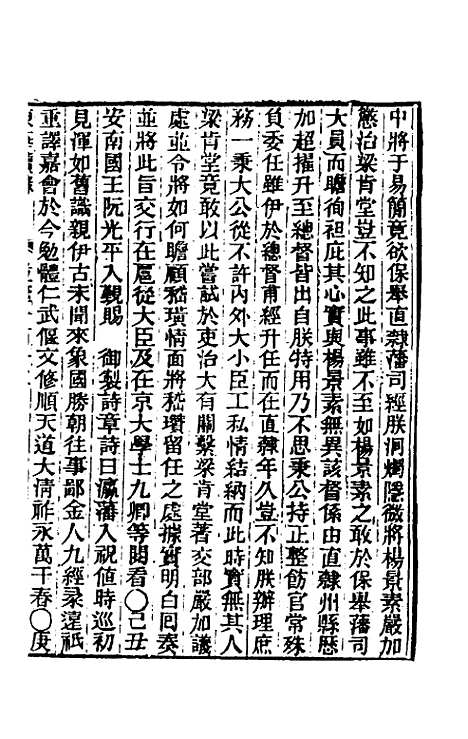 中將于易簡竟欲保舉直隸藩司經朕洞燭隱微將楊景素嚴加
懲治梁肯堂豈不知之此事雖不至如楊景素之敢於保舉藩司
大員而瞻徇袒庇其心實與楊景素無異該督係由直隸州縣歷
加超擢升至總督皆出自朕特用乃不思秉公持正整飭官常殊
負委任雖伊於總督甫經升任而在直隸年久豈不知朕辦理庶
務一秉大公從不許內外大小臣工私情結納而此時實無其人
梁肯堂竟敢以此嘗試於吏治大有關繫梁肯堂著交部嚴加議
處並令將如何瞻顧嵇璜情面將嵇瓚留任之處據實明白回奏
並將此旨交行在扈從大臣及在京大學士九卿等閱看〇己丑
安南國王阮光平入覲賜 御製詩章詩曰瀛藩入祝值時巡初
見渾如舊識親伊古未聞來象國勝朝往事鄙金人九經柔遠祇
重譯嘉會於今勉體仁武偃文修順天道大清祚永萬千春〇庚